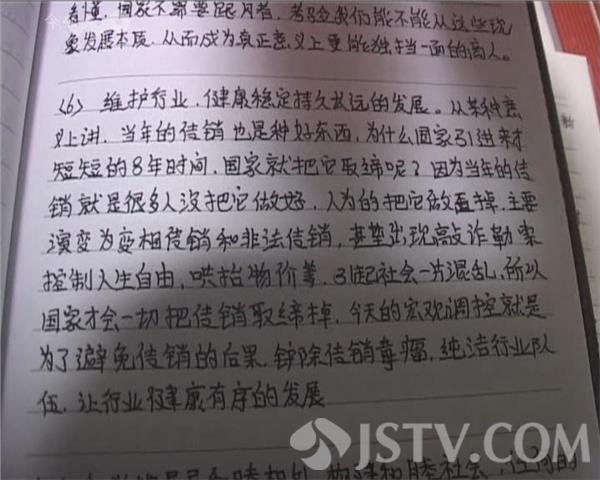 看懂,国家不需要跟月者,考验我们能不能从这些现
象发展本质.从而成为真正意义上更能独挡一面的商人。
〈6〉维护行业,健康稳定持久长远的发展。从某种意
义上讲.当年的传销也是种好东西,为什么国家引进来才
短短的8年时间,国家就把它取缔呢?因为当年的传
销就是很多人没把它做好,人为的把它做歪掉,主要
演变为变相传销和非法传销,甚至出现敲诈勒索
控制人生自由,哄抬物价等,引起社会一片混乱,所以
国家才会一切把传销取缔掉,今天的宏观调控就是
为了避免传销的后果,铲除传销毒瘤,纯洁行业队
伍,让行业健康有序的发展
构建和睦社会,任何的
JSTV.COM